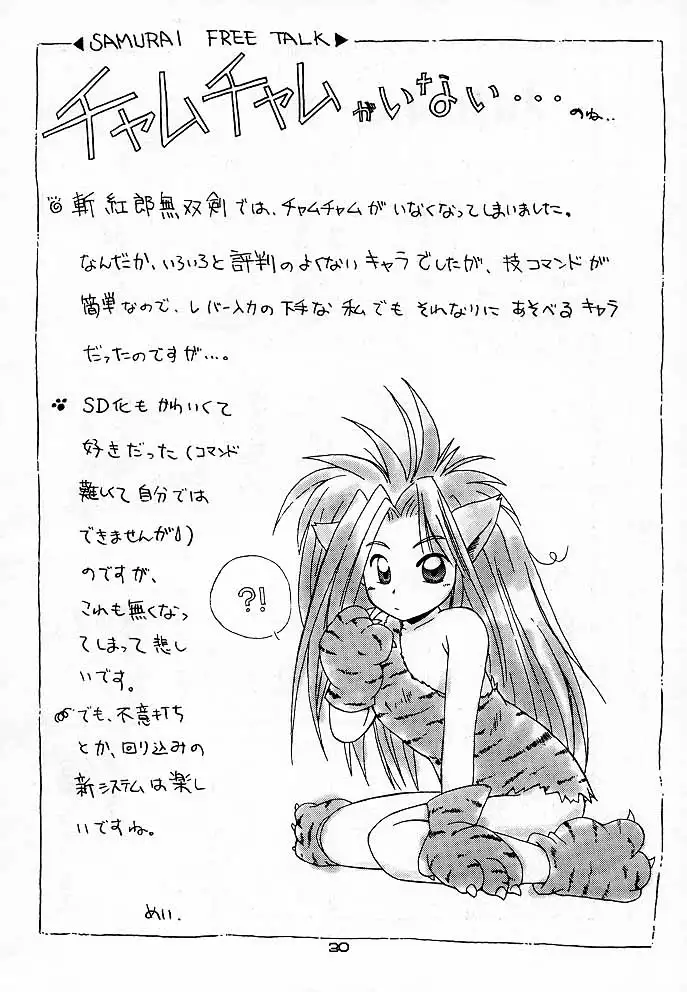 ◀SAMURAI FREE TALK▶
チャムチャムがいない・・・のね..
斬紅郎無双剣では、チャムチャムがいなくなってしまいました。
なんだか、いろいろと評判のよくないキャラでしたが、技コマンドが
簡単なので、レバー入力の下手な私でもそれなりにあそべるキャラ
だったのですが…。
SD化もかわいくて
好きだった(コマンド
難しくて自分では
できませんが)
のですが、
これも無くなっ
てしまって悲し
いです。
でも、不意打ち
とか、回り込みの
新システムは楽し
いですね。
?!
めい.
30